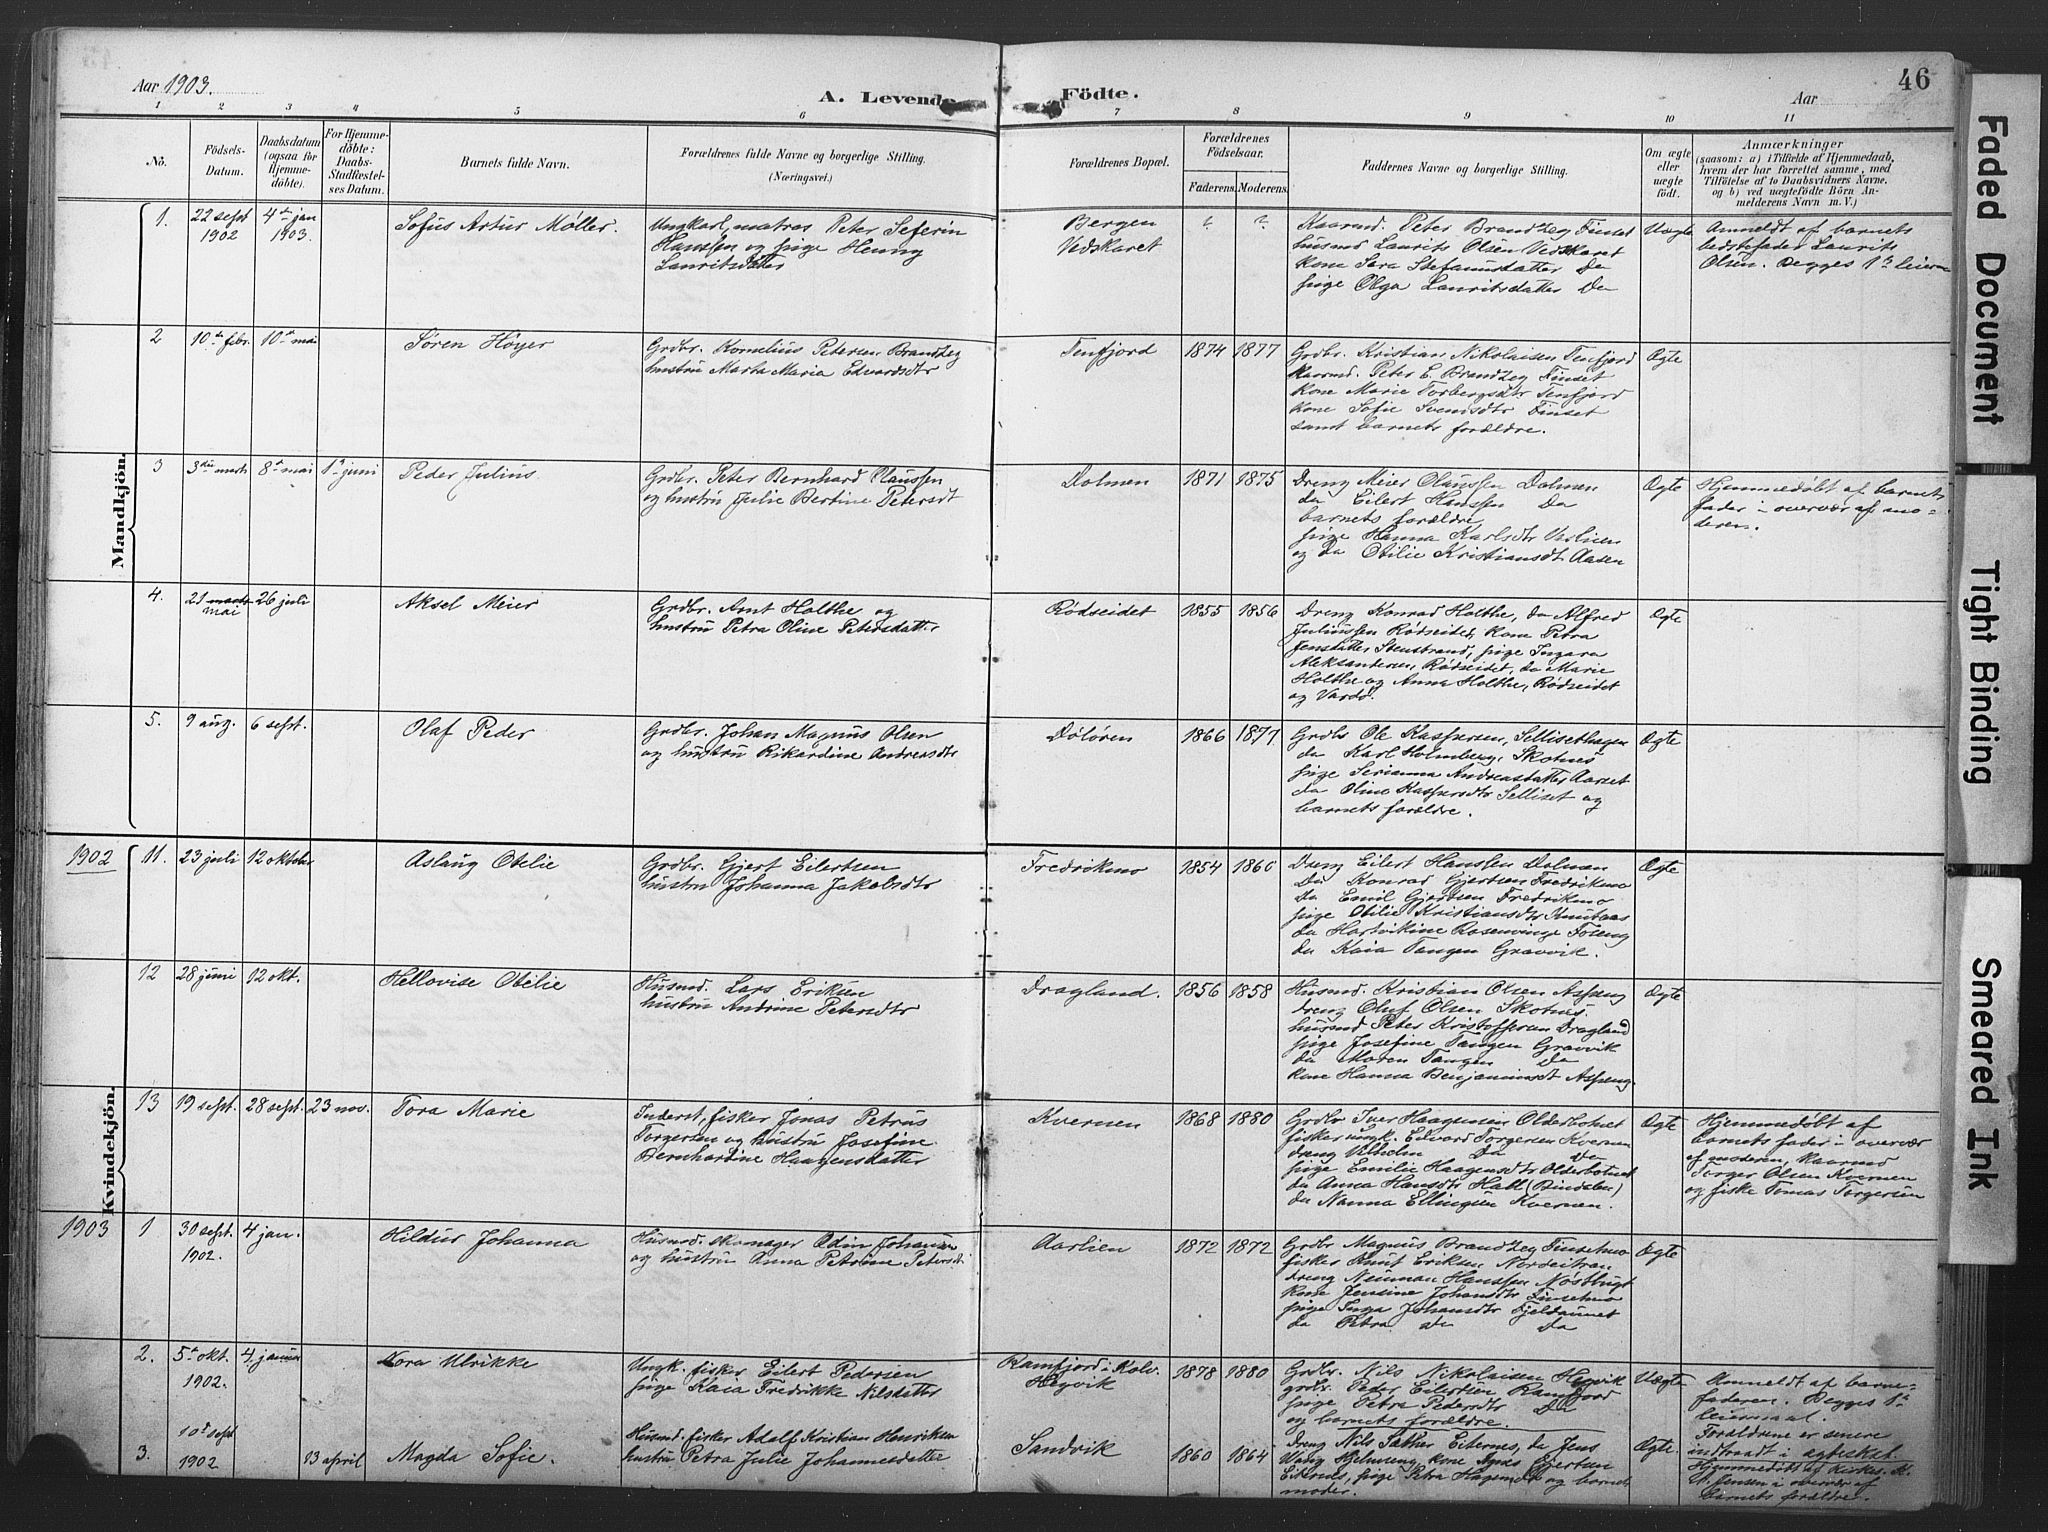 Aar 1903.
A. Levende Födte.
Aar
46
1 2 3 4 5 6 7 8 9 10 11
No.
Födsels-Datum.
Daabsdatum (ogsaa for Hjemmedöbte).
For Hjemmedöbte: Daabs-Stadfæstelses Datum.
Barnets fulde Navn.
Forældrenes fulde Navne og borgerlige Stilling.
(Næringsvei.)
Forældrenes Bopæl.
Forældrenes Födselsaar.
Faderens. Moderens.
Faddernes Navne og borgerlige Stilling.
Om ægte eller uægte födt.
Anmærkninger
(saasom: a) i Tilfælde af Hjemmedaab, hvem der har forrettet samme, med Tilföielse af to Daabsvidners Navne. og b) ved uægtefödte Börn Anmelderens Navn m. V.)
Mandkjön.
1. 22 sept 1902
4de jan 1903.
Sofus Artur Møller.
Ungkarl, matros Peter Seferin
Hanssen og pige Henny
Lauritsdatter
Bergen
Vedskaret
? ?
Kaarmd. Peter Brandtzeg Finset
husmd Laurits Olsen Vedskaret
kone Sara Stefanusdatter Do
pige Olga Lauritsdatter Do
Uægte
Anmeldt af barnets
bedstefader Laurits
Olsen. Begges 1ste leierm
2 10de febr. 10de mai
Søren Höyer
Grdbr. Kornelius Petersen Brandtzeg
hustru Marta Maria Edvardsdtr
Tenfjord
1874 1877
Grdbr. Kristian Nikolaisen Tenfjord
Kaarmd. Peter E. Brandtzeg Finset
Kone Marie Torbergsdtr Tenfjord
Kone Sofie Svendsdtr Finset
samt barnets forældre.
Ægte
3 3die marts 8de mai 1ste juni
Peder Julius
Grdbr. Peter Bernhard Olaussen
og hustru Julie Bertine Petersdt
Dolmen
1871 1875
Dreng Meier Olaussen Dolmen
da Eilert Hanssen Do
barnets forældre
pige Hanna Karlsdtr
og da Otilie Kristiansdt Aasen
Ægte
Hjemmedøbt af barnets
fader i overvær af mo-
deren.
4. 21 marts
mai 26 juli
Aksel Meier
Grdbr. Arnt Holthe og
hustru Petra Oline Petersdatter
Rødseidet
1855 1856
Dreng Konrad Holthe, da Alfred
Juliussen Rødseidet, Kone Petra
Jensdatter Stensbrand, pige Ingara
Aleksandersen, Rødseidet, da Marie
Holthe og Anna Holthe, Rødseidet
og Vardø.
Ægte
5. 9 aug. 6 sept.
Olaf Peder
Grdbr. Johan Magnus Olsen
og hustru Rikardine Andreasdtr
Døløren
1866 1871
Grdbr Ole Kaspersen, Sellisethagen
da Karl Holmberg, Skotnes
pige Serianna Andreasdatter Aarset
da Oline Kaspersdtr Selliset og
barnets forældre.
Ægte
Kvindekjön.
1902 11. 23 juli 12 oktober
Aslaug Otelie
Grdbr. Gjert Eilertsen
hustru Johanna Jakobsdtr
Fredriksmo
1854 1860
Dreng Eilert Hanssen Dolmen
Do Konrad Gjertsen Fredriksmo
Do Emil Gjertsen Fredriksmo
pige Otilie Kristiansdtr Knubaas
da Hartvikine Rosenvinge Foseng
da Kaia Tangen Gravvik.
Ægte
12 28 juni 12 okt.
Hellovise Otelie
Husmd. Lars Eriksen
hustru Andrine Petersdtr
Dragland.
1856 1858
Husmd. Kristian Olsen Aspeng
dreng Oluf Olsen Skotnes
husmd Peter Kristoffersen Dragland
pige Josefine Tangen Gravvik
da Maren Tangen Do
kone Hanna Benjaminsdt Aspeng.
Ægte
13 19 sept. 28 sept. 23 nov.
Tora Marie
Inderst, fisker Jonas Petrus
Torgersen og hustru Josefine
Bernhardine Haagensdatter
Kvernen
1868 1880
Grdbr Iver Haagensen Olderbotnet
fisker ungk. Edvard Torgersen Kvernen
dreng Vilhelm Do Do
pige Emilie Haagensdtr Olderbotnet
da Anna Hansdtr Hall (Bindalen)
da Nanna Ellingsen Kvernen.
Ægte
Hjemmedøbt af
barnets fader i overvær
af moderen, kaarmd
Torger Olsen Kvernen
og fisker Tomas Torgersen
1903 1 30 sept. 1902. 4 jan.
Hildur Johanna
Husmd. skomager Odin Johansen
og hustru Anna Petrine Petersdt
Aarlien
1872 1872
Grdbr Magnus Brandtzeg Finsetmo
fisker Knut Eriksen Nordeitran
dreng Neuman Hanssen Nøstbugt
Kone Jensine Johansdtr Finsetmo
pige Inga Johansdtr Fjeldaunet
da Petra Do Do
Ægte
2. 5te okt. 1902. 4 januar
Nora Ulrikke
Ungk. fisker Eilert Pedersen
pige Kaia Fredrikke Nilsdatter
Ramfjord i Kolv.
Hegvik
1878 1880
Grdbr. Nils Nikolaisen Hegvik
grdbr. Peter Eilertsen Ramfjord
pige Petra Pedersdtr Do
og barnets forældre.
Uægte
Anmeldt af barne-
faderen. Begges 1ste
leiermaal.
Forældrene er senere
indtraadt i ægteskab.
3. 10de sept 1902 13 april
Magda Sofie.
Husmd. fisker Adolf Kristian Henriksen
hustru Petra Julie Johannesdatter
Sandvik
1860 1864
Dreng Nils Sæther Eiternes, da Jens
Wang Hjelmseng, kone Agnes Gjertsen
Eiternes, pige Petra Hagemo og barnets
moder.
Ægte.
Hjemmedøbt af kirkes. K.
U. Jensen i overvær af
barnets forældre.
Faded Document
Tight Binding
Smeared Ink